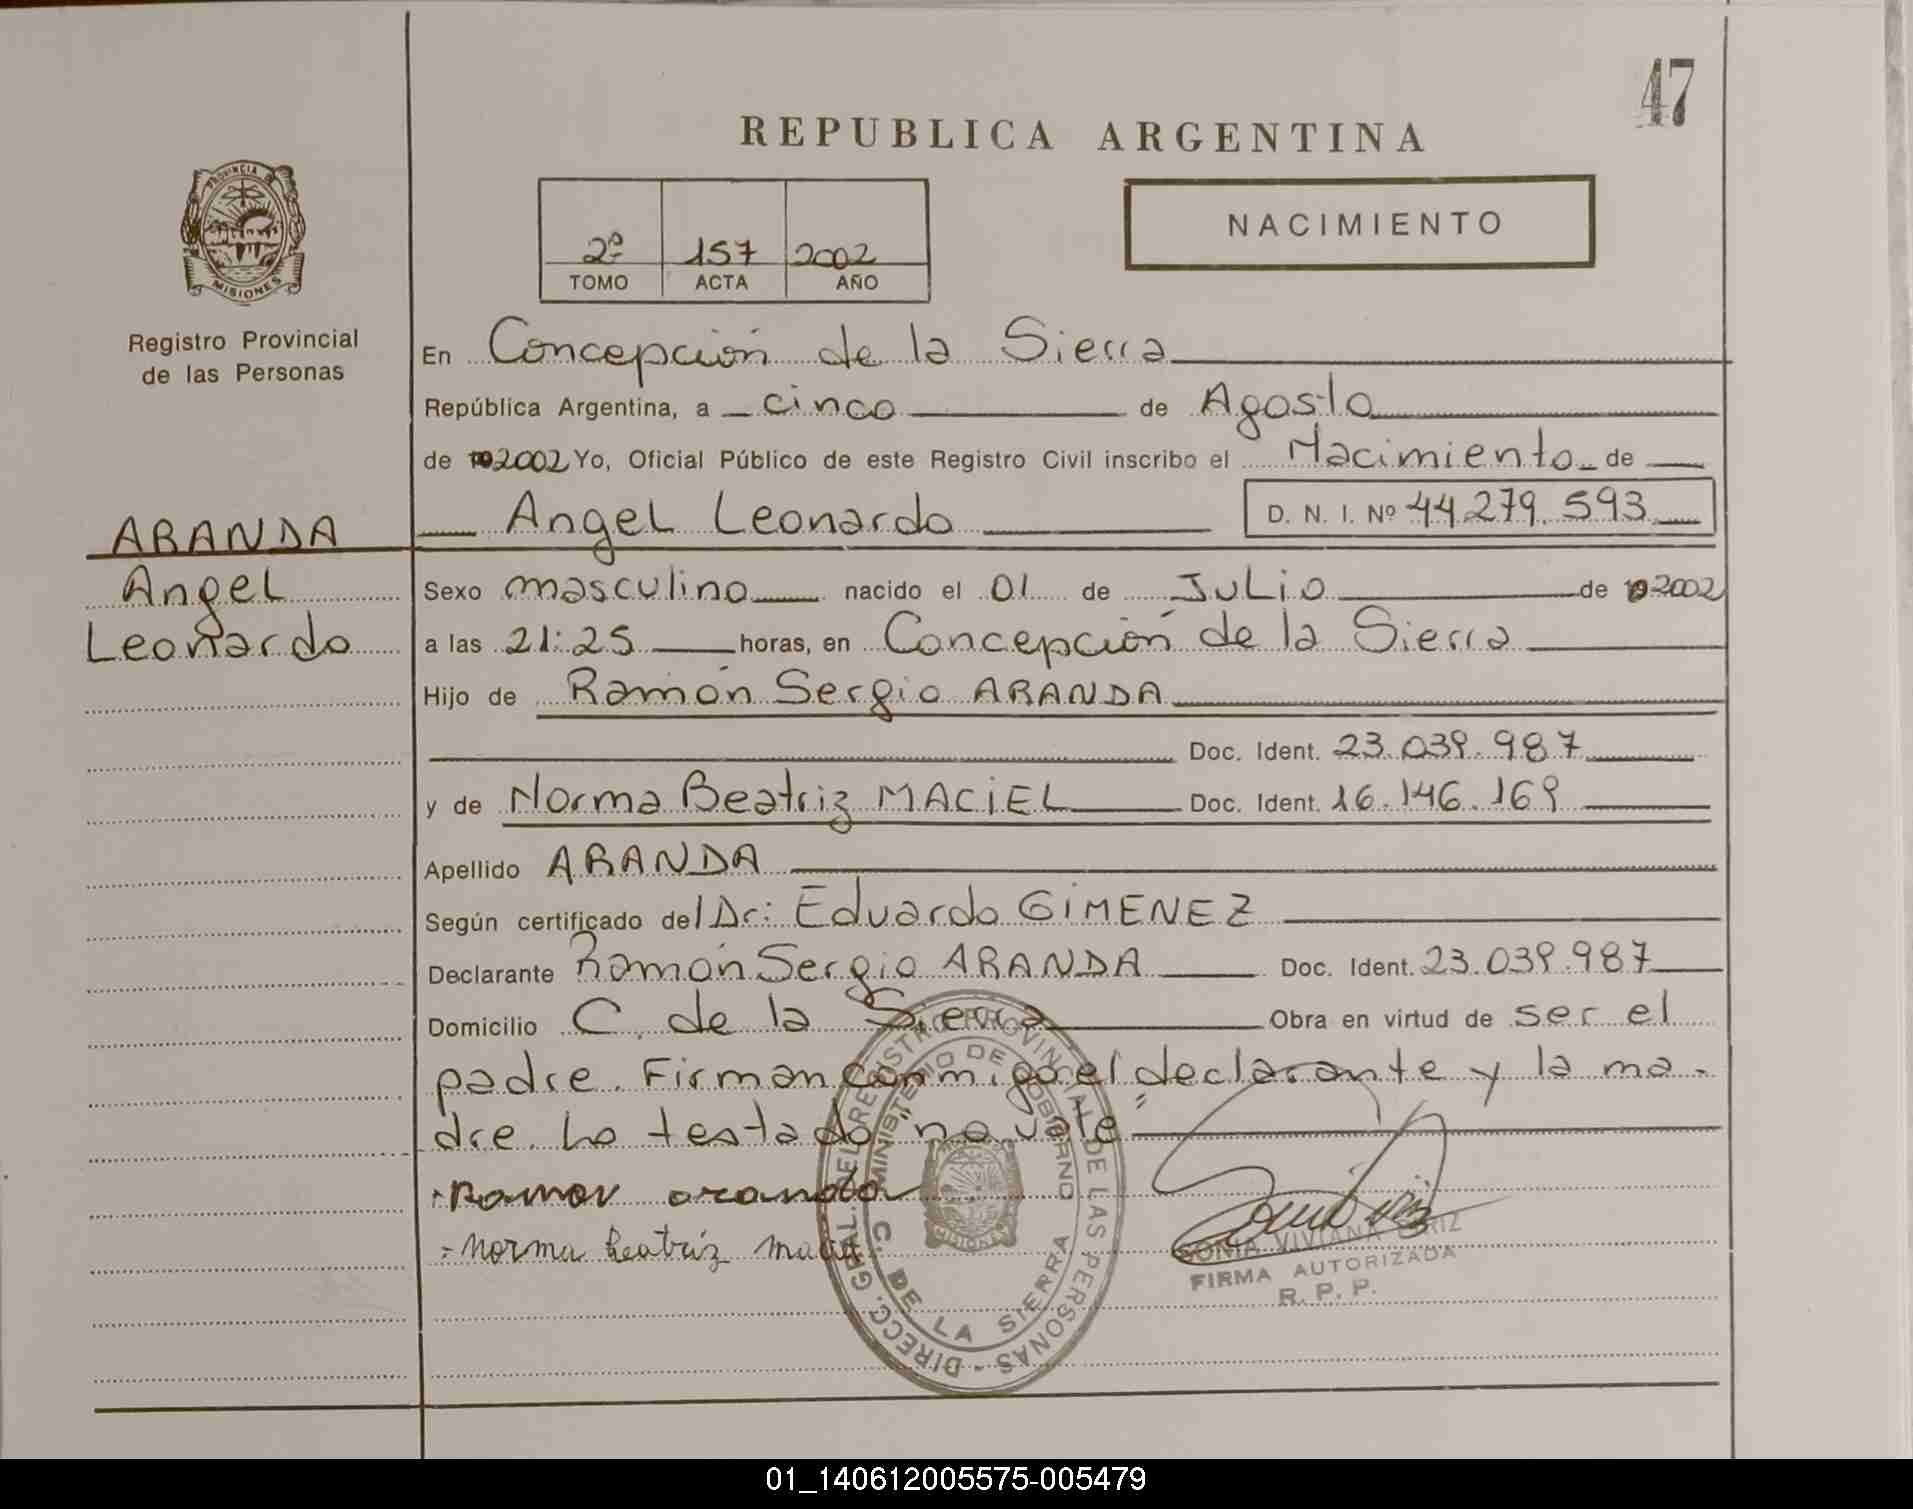 47
REPUBLICA ARGENTINA
NACIMIENTO
2º 157 2002
TOMO ACTA AÑO
PROVINCIA
MISIONES
Registro Provincial
de las Personas
En Concepción de la Sierra
República Argentina, a cinco de Agosto
de 2002 Yo, Oficial Público de este Registro Civil inscribo el Nacimiento de
Angel Leonardo D. N. I. Nº 44.279.593
ARANDA
Angel
Leonardo
Sexo masculino nacido el 01 de Julio de 2002
a las 21:25 horas, en Concepción de la Sierra
Hijo de Ramón Sergio ARANDA
Doc. Ident. 23.039.987
y de Norma Beatriz MACIEL Doc. Ident. 16.146.169
Apellido ARANDA
Según certificado del Dr: Eduardo GIMENEZ
Declarante Ramón Sergio ARANDA Doc. Ident. 23.039.987
Domicilio C. de la Sierra Obra en virtud de ser el
padre. Firman conmigo el declarante y la ma-
dre. Lo testado "no vale"
Ramon aranda
Norma beatriz maciel
DIRECC. GRAL. DEL REGISTRO PROVINCIAL DE LAS PERSONAS
MINISTERIO DE GOBIERNO
C. DE LA SIERRA
MISIONES
SONIA VIVIANA
FIRMA AUTORIZADA
R. P. P.
01_140612005575-005479